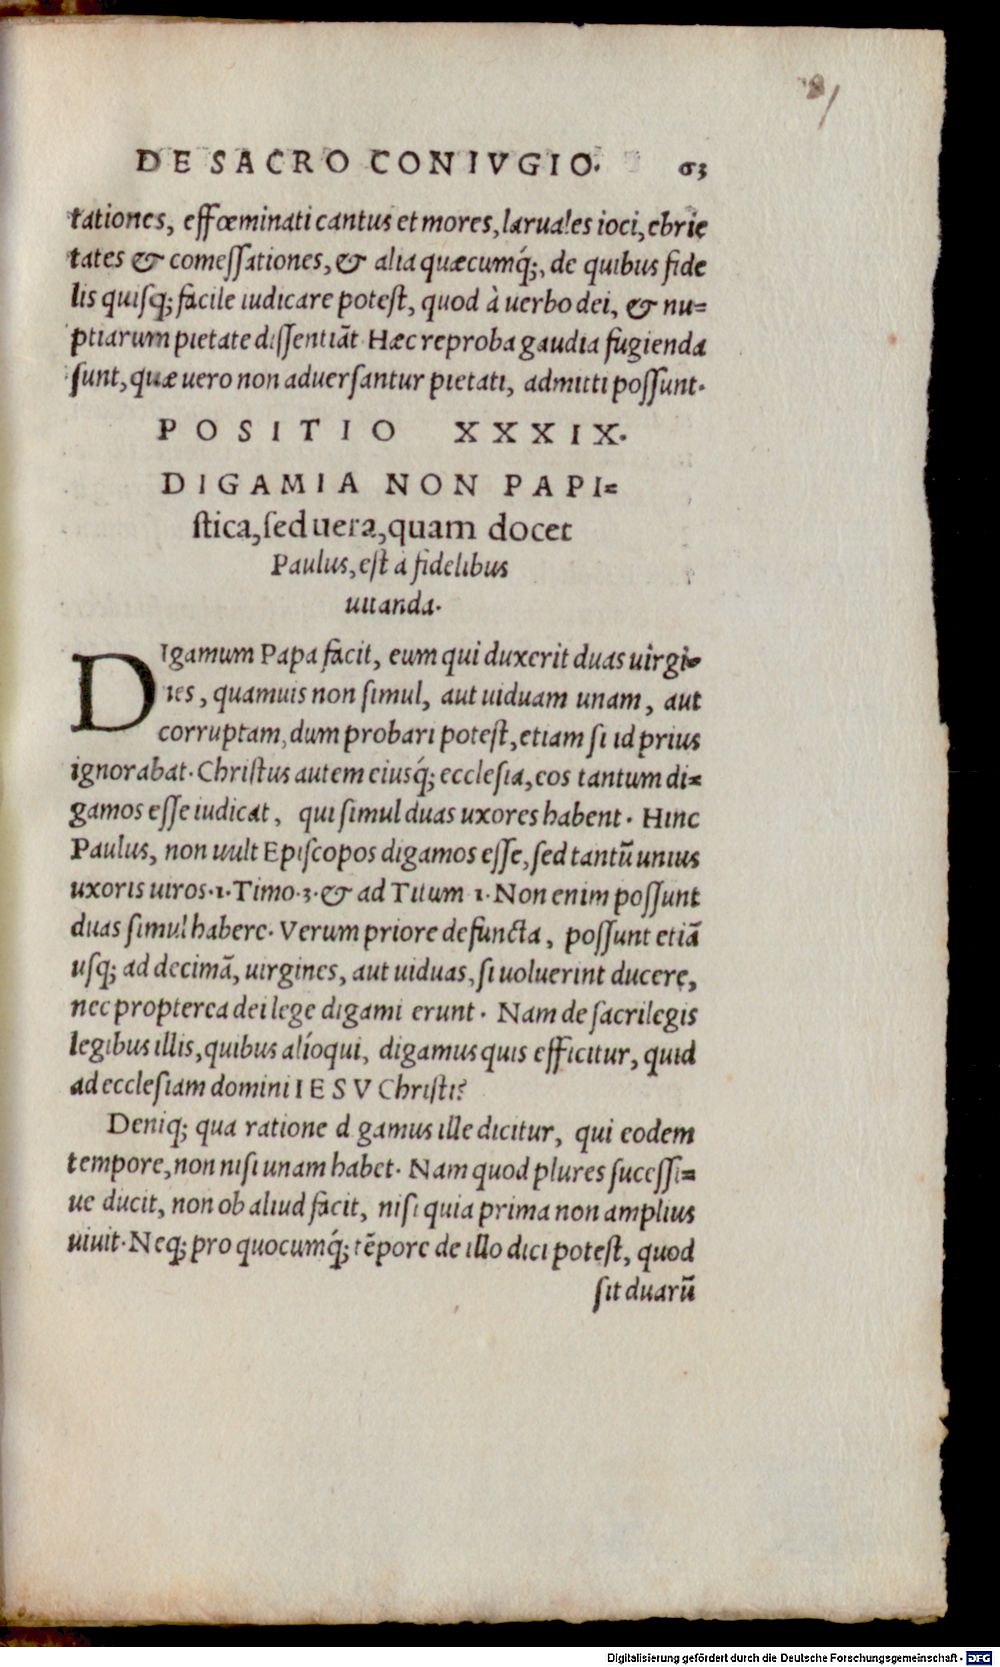 DE SACRO CONIVGIO. 63
tationes, effœminati cantus et mores, laruales ioci, ebrie
tates & comessationes, & alia quæcumq́;, de quibus fide
lis quisq; facile iudicare potest, quod à uerbo dei, & nu=
ptiarum pietate dissentiāt. Hæc reproba gaudia fugienda
sunt, quæ uero non aduersantur pietati, admitti possunt.
POSITIO XXXIX.
DIGAMIA NON PAPI=
stica, sed uera, quam docet
Paulus, est a fidelibus
uitanda.
DIgamum Papa facit, eum qui duxerit duas uirgi=
nes, quamuis non simul, aut uiduam unam, aut
corruptam, dum probari potest, etiam si id prius
ignorabat. Christus autem eiusq́; ecclesia, eos tantum di=
gamos esse iudicat, qui simul duas uxores habent. Hinc
Paulus, non uult Episcopos digamos esse, sed tantū unius
uxoris uiros. 1. Timo. 3. & ad Titum 1. Non enim possunt
duas simul habere. Verum priore defuncta, possunt etiā
usq; ad decimā, uirgines, aut uiduas, si uoluerint ducere,
nec propterea dei lege digami erunt. Nam de sacrilegis
legibus illis, quibus alíoqui, digamus quis efficitur, quid
ad ecclesiam domini IESV Christi?
Deniq; qua ratione d gamus ille dicitur, qui eodem
tempore, non nisi unam habet. Nam quod plures sucessi=
ue ducit, non ob aliud facit, nisi quia prima non amplius
uiuit. Neq; pro quocumq́; tēpore de illo dici potest, quod
sit duarū
Digitalisierung gefördert durch die Deutsche Forschungsgemeinschaft - DFG